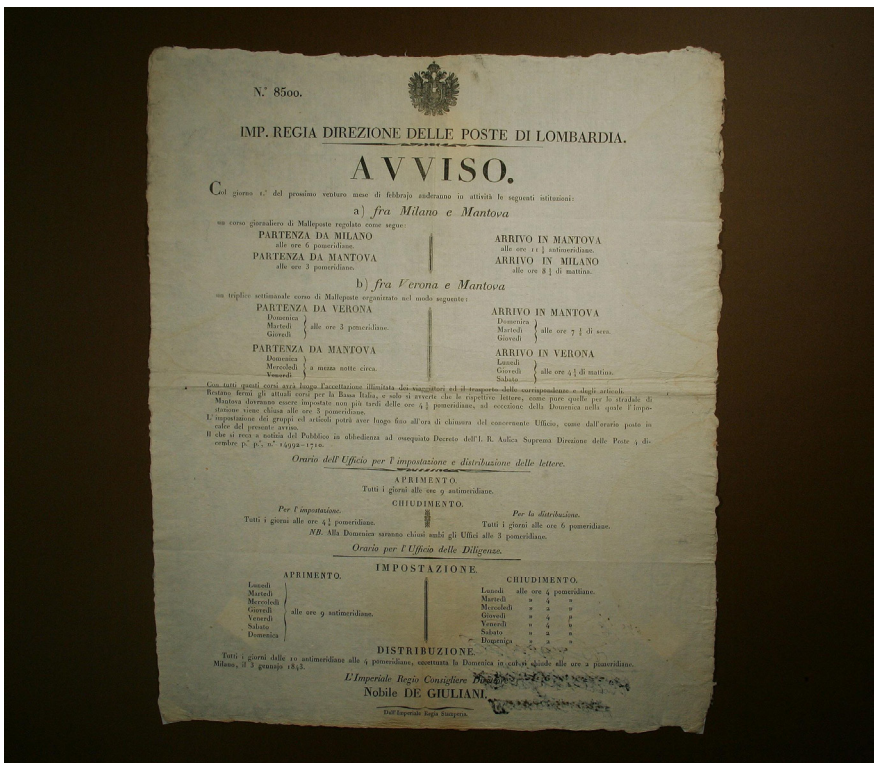 N.° 8500.
IMP. REGIA DIREZIONE DELLE POSTE DI LOMBARDIA.
AVVISO.
Col giorno 1.° del prossimo venturo mese di febbrajo anderanno in attività le seguenti istituzioni:
a) fra Milano e Mantova
un corso giornaliero di Malleposte regolato come segue:
PARTENZA DA MILANO
alle ore 6 pomeridiane.
PARTENZA DA MANTOVA
alle ore 3 pomeridiane.
ARRIVO IN MANTOVA
alle ore 11 ½ antimeridiane.
ARRIVO IN MILANO
alle ore 8 ½ di mattina.
b) fra Verona e Mantova
un triplice settimanale corso di Malleposte organizzato nel modo seguente:
PARTENZA DA VERONA
Domenica
Martedì
Giovedì
alle ore 3 pomeridiane.
ARRIVO IN MANTOVA
Domenica
Martedì
Giovedì
alle ore 7 ½ di sera.
PARTENZA DA MANTOVA
Domenica
Mercoledì
Venerdì
a mezza notte circa.
ARRIVO IN VERONA
Lunedì
Giovedì
Sabato
alle ore 4 ½ di mattina.
Con tutti questi corsi avrà luogo l'accettazione illimitata dei viaggiatori ed il trasporto delle corrispondenze e degli articoli.
Restano fermi gli attuali corsi per la Bassa Italia, e solo si avverte che le rispettive lettere, come pure quelle per lo stradale di
Mantova dovranno essere impostate non più tardi delle ore 4 ½ pomeridiane, ad eccezione della Domenica nella quale l'impo-
stazione viene chiusa alle ore 3 pomeridiane.
L'impostazione dei gruppi ed articoli potrà aver luogo fino all'ora di chiusura del concernente Ufficio, come dall'orario posto in
calce del presente avviso.
Il che si reca a notizia del Pubblico in obbedienza ad ossequiato Decreto dell'I. R. Aulica Suprema Direzione delle Poste 4 di-
cembre p.° p.°, n.° 14992-1720.
Orario dell'Ufficio per l'impostazione e distribuzione delle lettere.
APRIMENTO.
Tutti i giorni alle ore 9 antimeridiane.
CHIUDIMENTO.
Per l'impostazione.
Tutti i giorni alle ore 4 ½ pomeridiane.
Per la distribuzione.
Tutti i giorni alle ore 6 pomeridiane.
NB. Alla Domenica saranno chiusi ambi gli Uffici alle 3 pomeridiane.
Orario per l'Ufficio delle Diligenze.
IMPOSTAZIONE.
APRIMENTO.
Lunedì
Martedì
Mercoledì
Giovedì
Venerdì
Sabato
Domenica
alle ore 9 antimeridiane.
CHIUDIMENTO.
Lunedì alle ore 4 pomeridiane.
Martedì » 4 »
Mercoledì » 2 »
Giovedì » 4 »
Venerdì » 4 »
Sabato » 2 »
Domenica » 2 »
DISTRIBUZIONE.
Tutti i giorni dalle 10 antimeridiane alle 4 pomeridiane, eccettuata la Domenica in cui si chiude alle ore 2 pomeridiane.
Milano, il 3 gennajo 1843.
L'Imperiale Regio Consigliere Direttore
Nobile DE GIULIANI.
Dall'Imperiale Regia Stamperia.